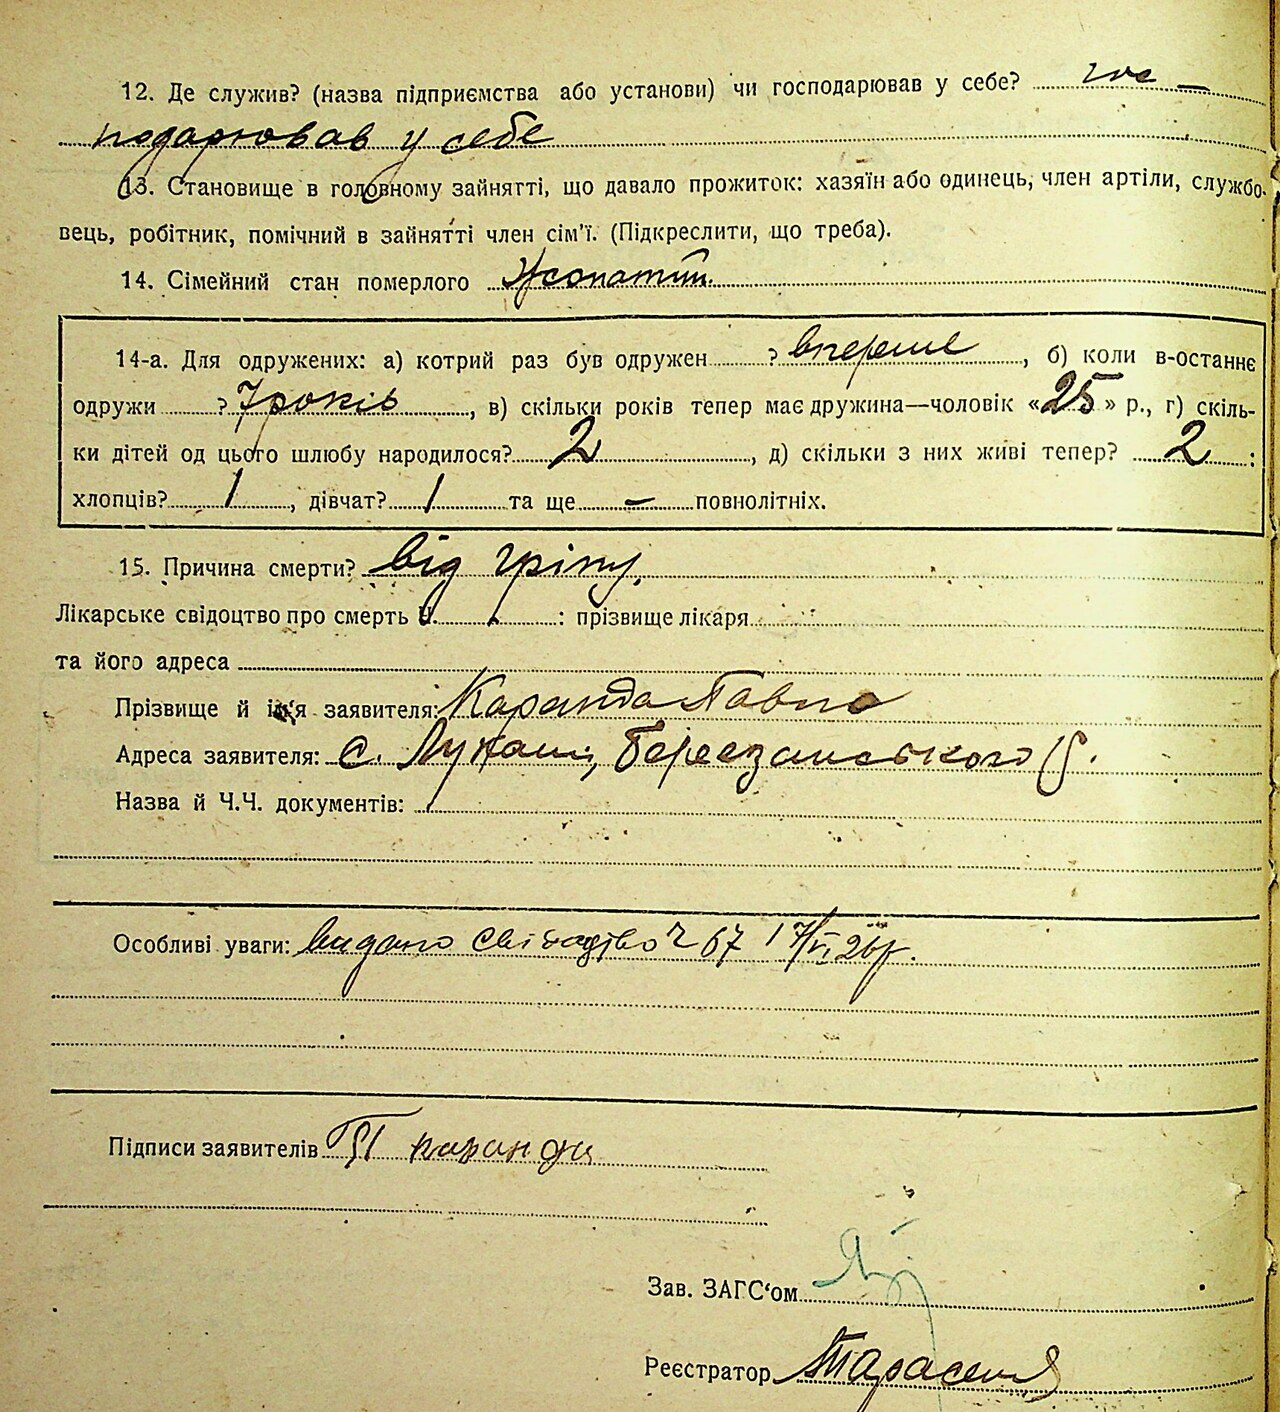 12. Де служив? (назва підприємства або установи) чи господарював у себе? гос—
подарював у себе
13. Становище в головному зайнятті, що давало прожиток: хазяїн або одинець, член артіли, службо-
вець, робітник, помічний в зайнятті член сім'ї. (Підкреслити, що треба).
14. Сімейний стан померлого Жонатий.
14-а. Для одружених: а) котрий раз був одружен ? вперше, б) коли в-останнє
одружи ? 7 років, в) скільки років тепер має дружина—чоловік «25» р., г) скіль-
ки дітей од цього шлюбу народилося? 2, д) скільки з них живі тепер? 2:
хлопців? 1, дівчат? 1 та ще — повнолітніх.
15. Причина смерти? від гріпу.
Лікарське свідоцтво про смерть Ч. : прізвище лікаря
та його адреса
Прізвище й ім'я заявителя: Каранда Павло
Адреса заявителя: с. Лукаші, Березанського р.
Назва й Ч.Ч. документів:
Особливі уваги: видано свідоцтво Ч 67 17/VI 26 р.
Підписи заявителів П каранда
Зав. ЗАГС'ом
Реєстратор